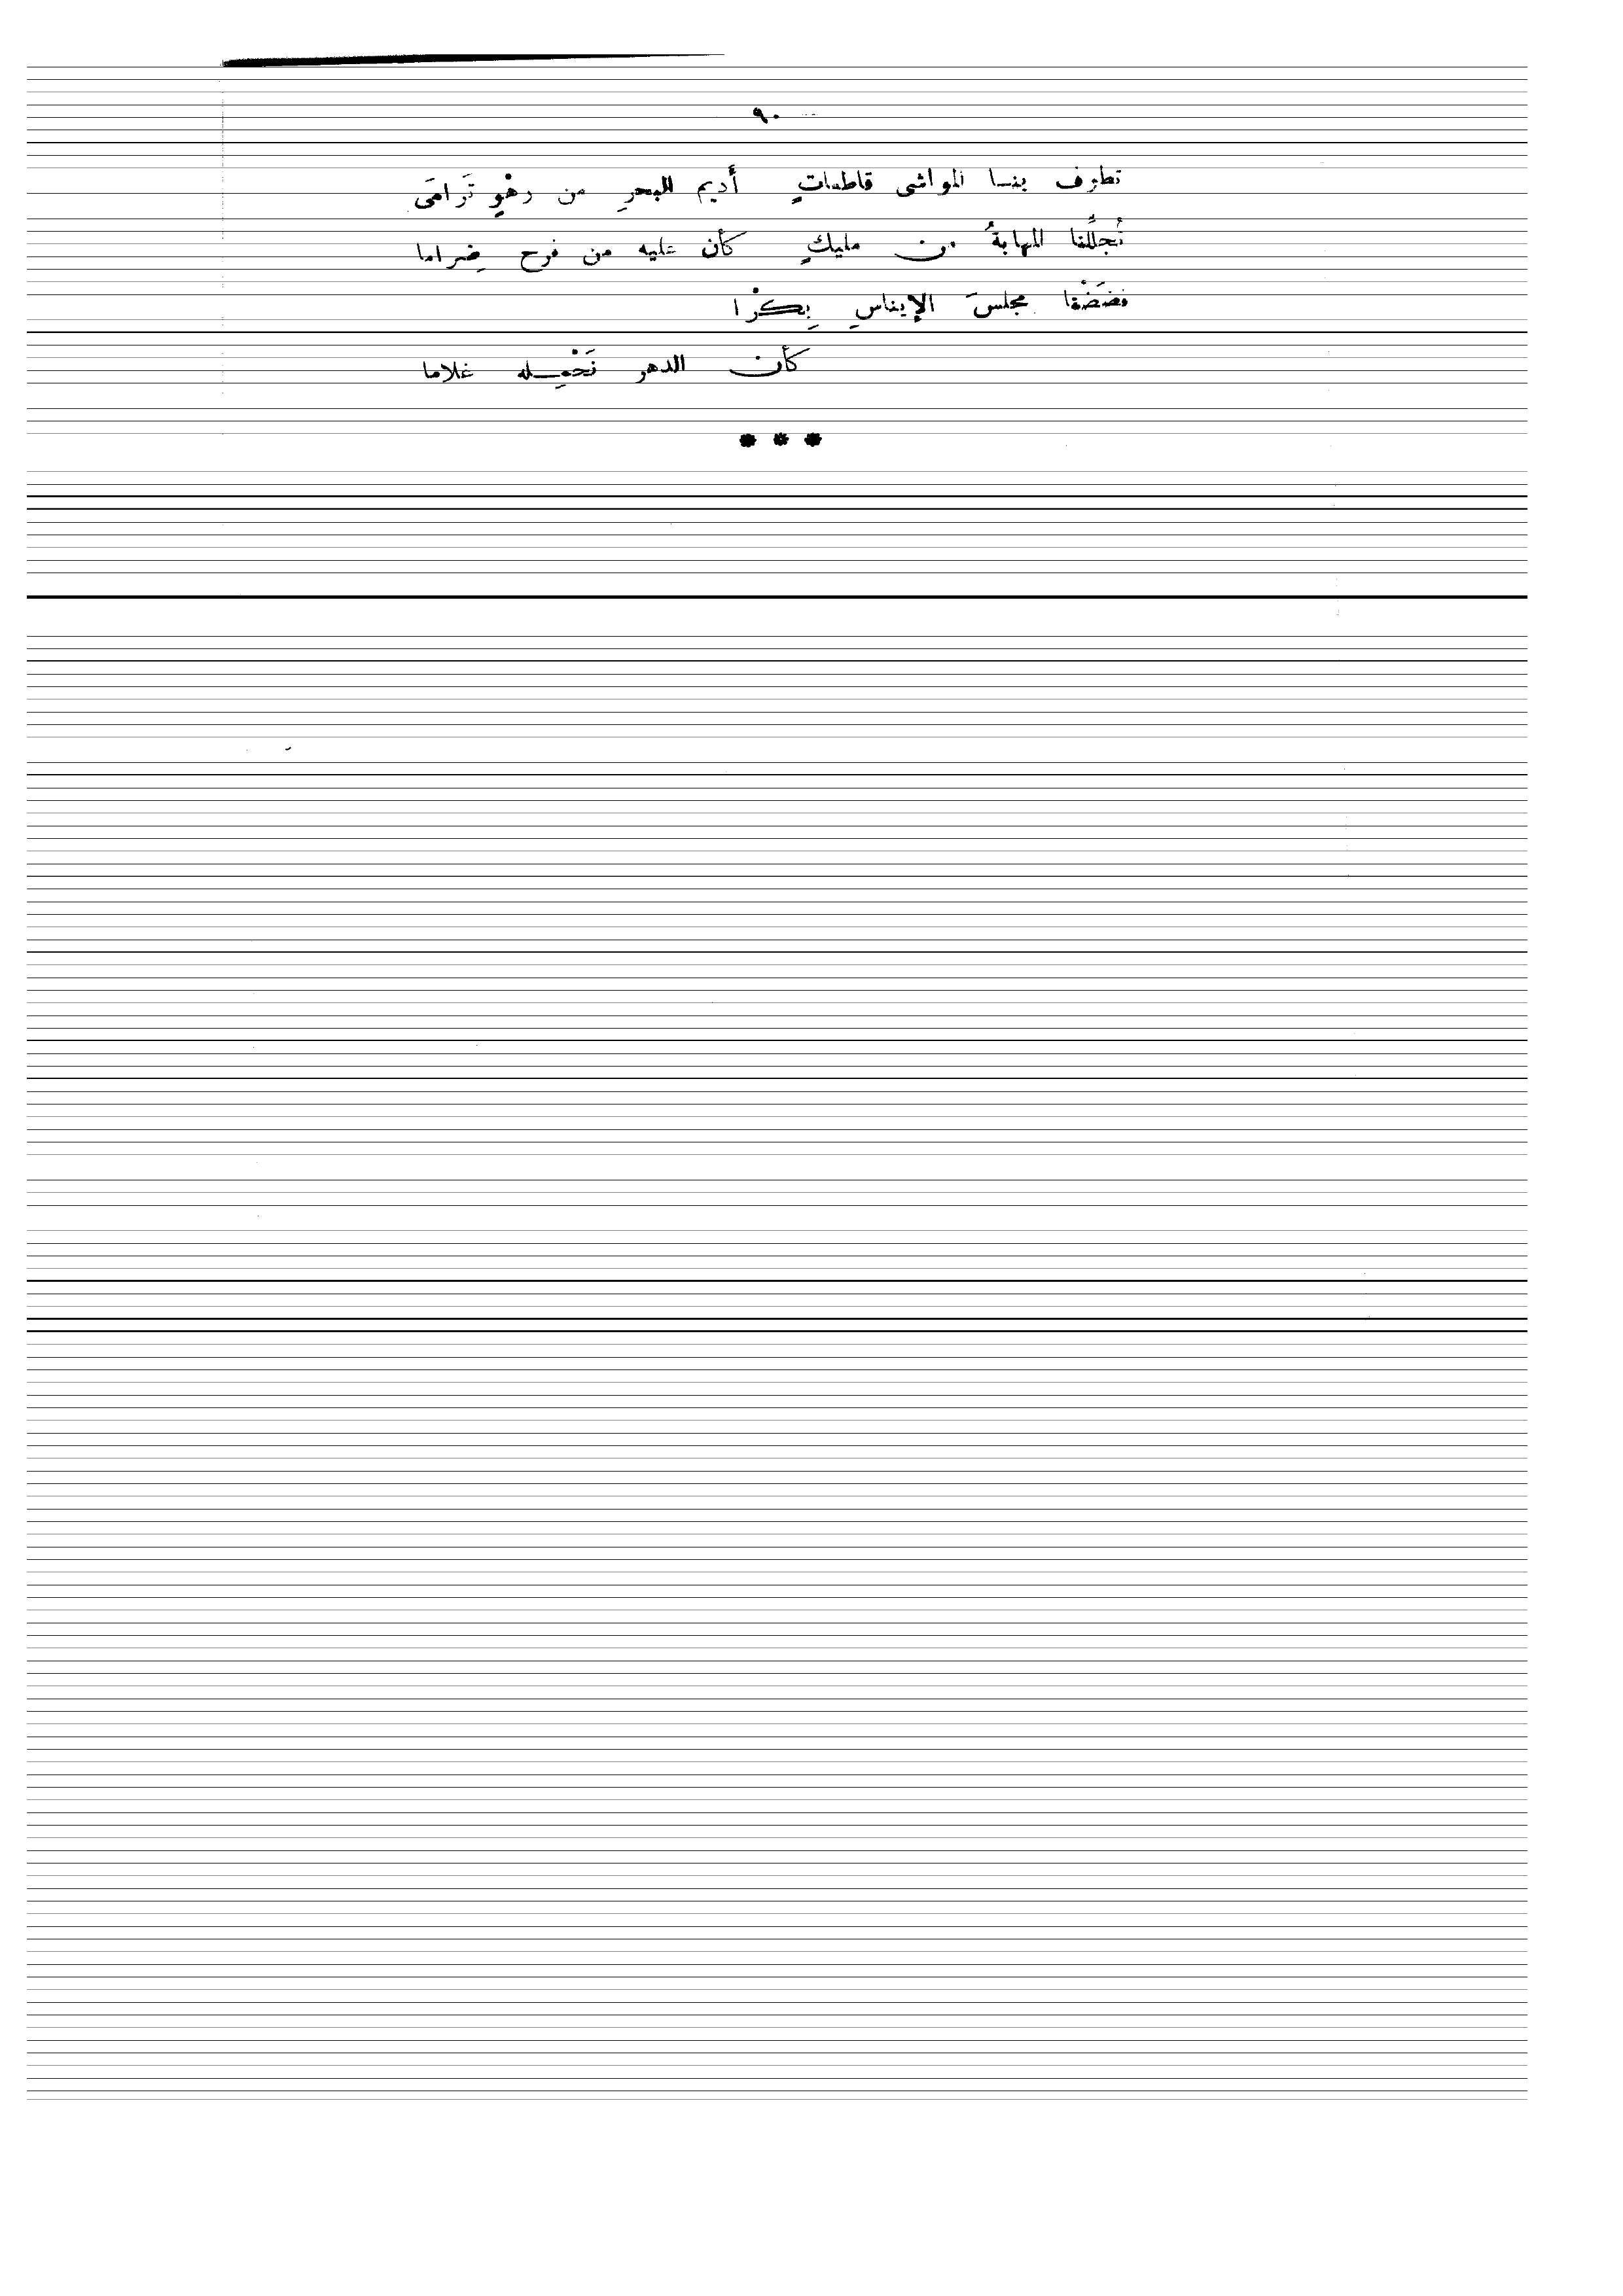 ٩٠
تطرف بنا المواشى قاطعاتٍ أديم البحرِ من رهْوٍ تَرامَى
تُجلِّلنا المهابةُ من مليكٍ كأن عليه من فرح ضِراما
فضَضْنا مجلسَ الإيناسِ بِكْرا
كأن الدهر نَحْمِله غلاما
* * *